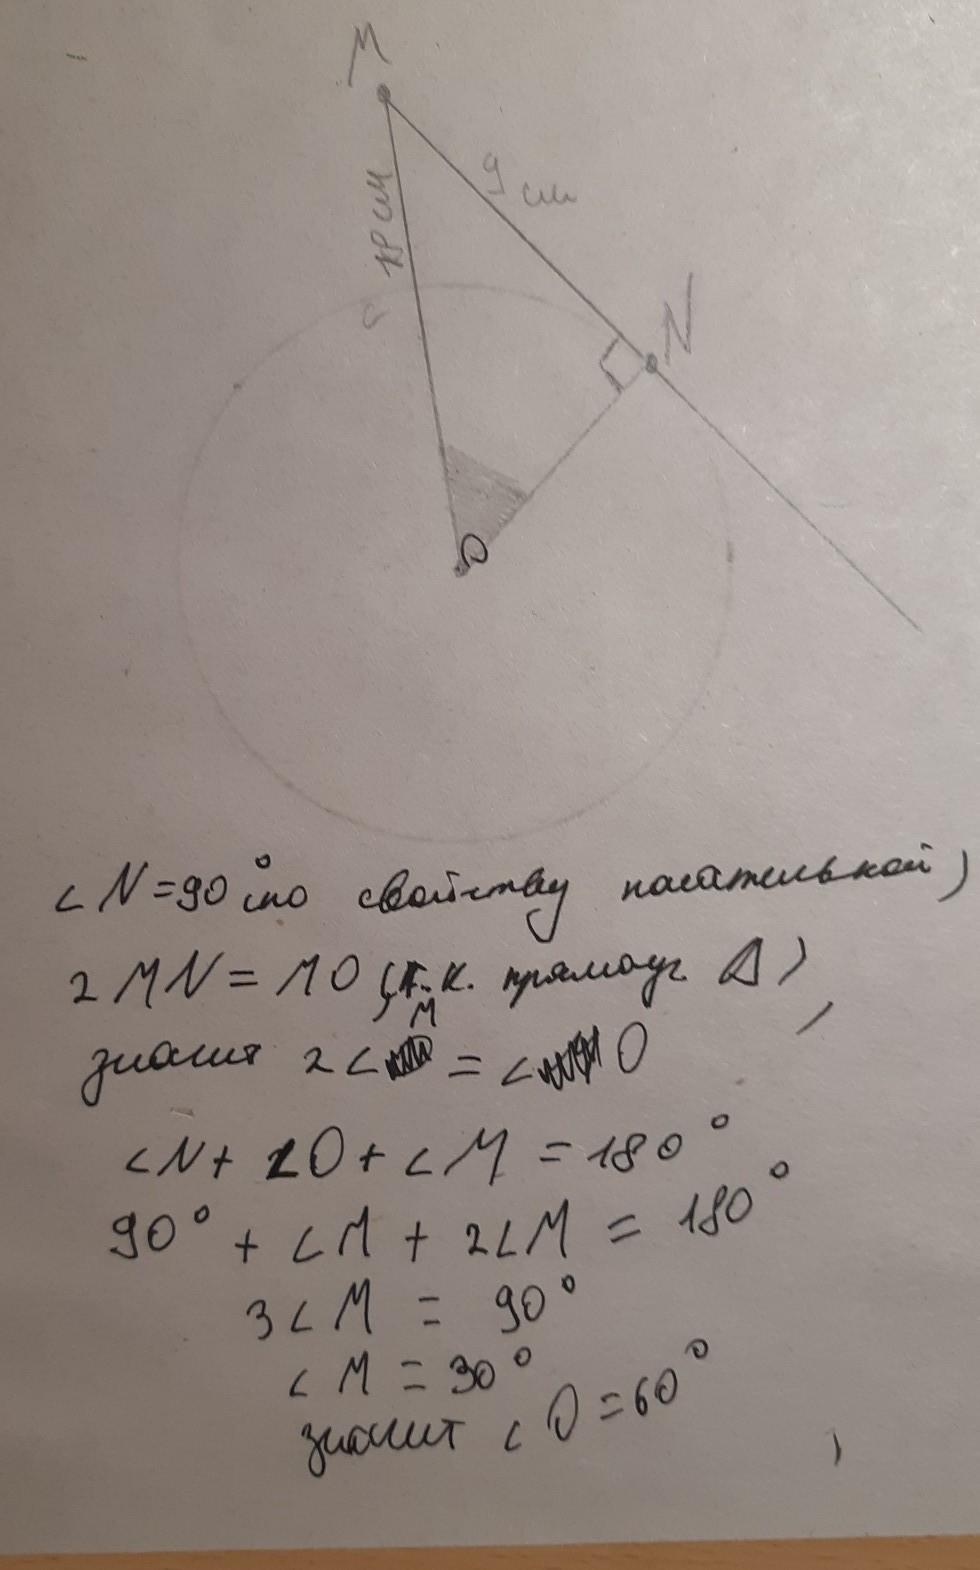 M
9 см
18 см
N
O
∠N=90° (по свойству касательной)
2MN = MO (т.к. прямоуг. Δ),
M
значит 2∠ = ∠ O
∠N + ∠O + ∠M = 180°
90° + ∠M + 2∠M = 180°
3∠M = 90°
∠M = 30°
значит ∠O = 60°